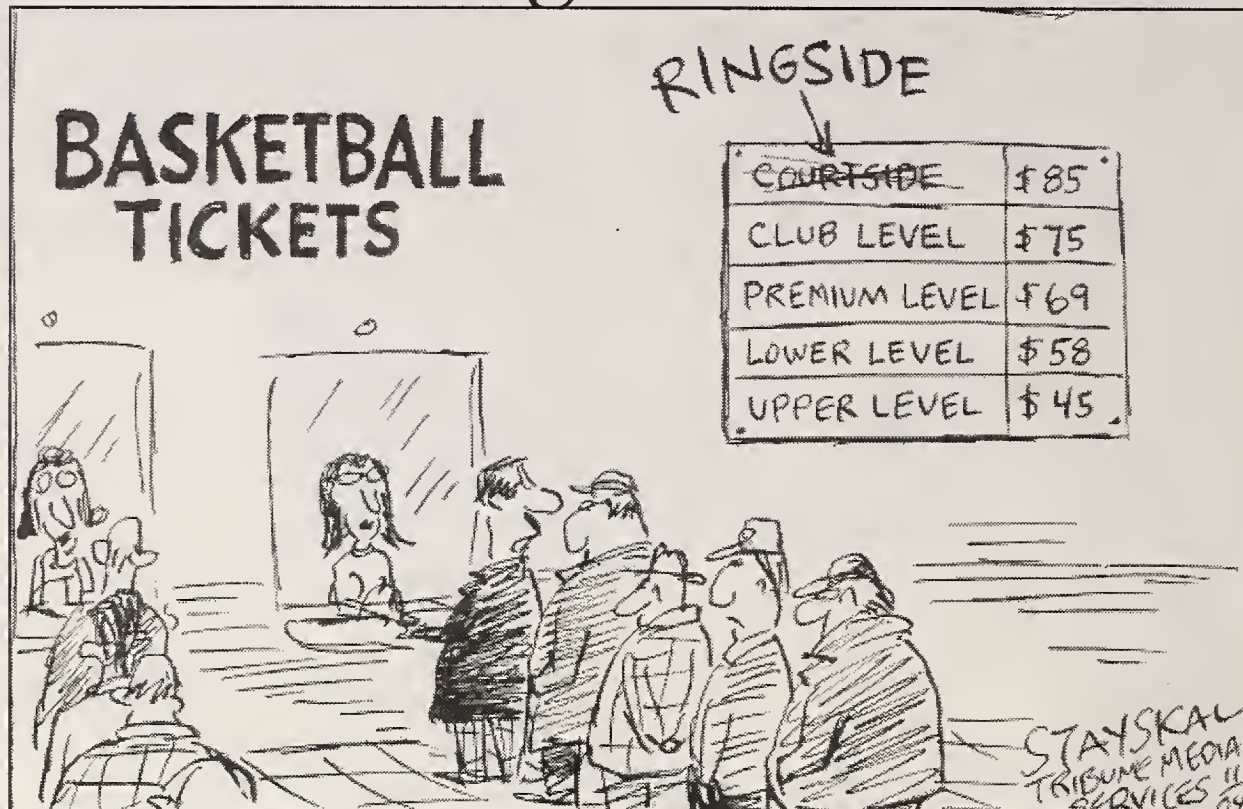 BASKETBALL
TICKETS
RINGSIDE
COURTSIDE $85
CLUB LEVEL $75
PREMIUM LEVEL $69
LOWER LEVEL $58
UPPER LEVEL $45
STAYSKAL
TRIBUNE MEDIA
SERVICES